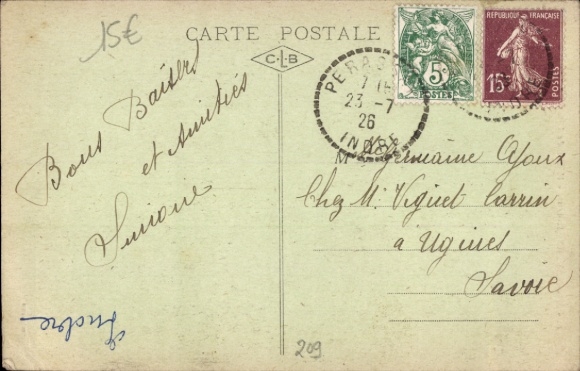 15€
CARTE POSTALE
CLB
RÉPUBLIQUE FRANÇAISE
15c
POSTES
5c
POSTES
23 -7
26
INDRE
Bons Baisers
et Amitiés
Simone
Germaine Ajoux
Chez Mr Viguet Carrin
à Ugines
Savoie
Indre
209